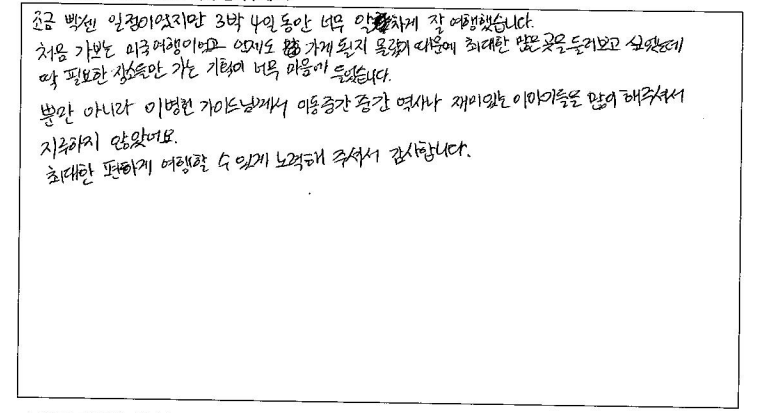 조금 빡센 일정이었지만 3박 4일동안 너무 알차게 잘 여행했습니다.
처음 가보는 미국여행이었고 언제 또 가게 될지 몰랐기 때문에 최대한 많은곳을 둘러보고 싶었는데
딱 필요한 장소들만 가는 기획이 너무 마음에 들었습니다.
뿐만 아니라 이병헌 가이드님께서 이동중간 중간 역사나 재미있는 이야기들을 많이 해주셔서
지루하지 않았어요.
최대한 편하게 여행할 수 있게 노력해 주셔서 감사합니다.